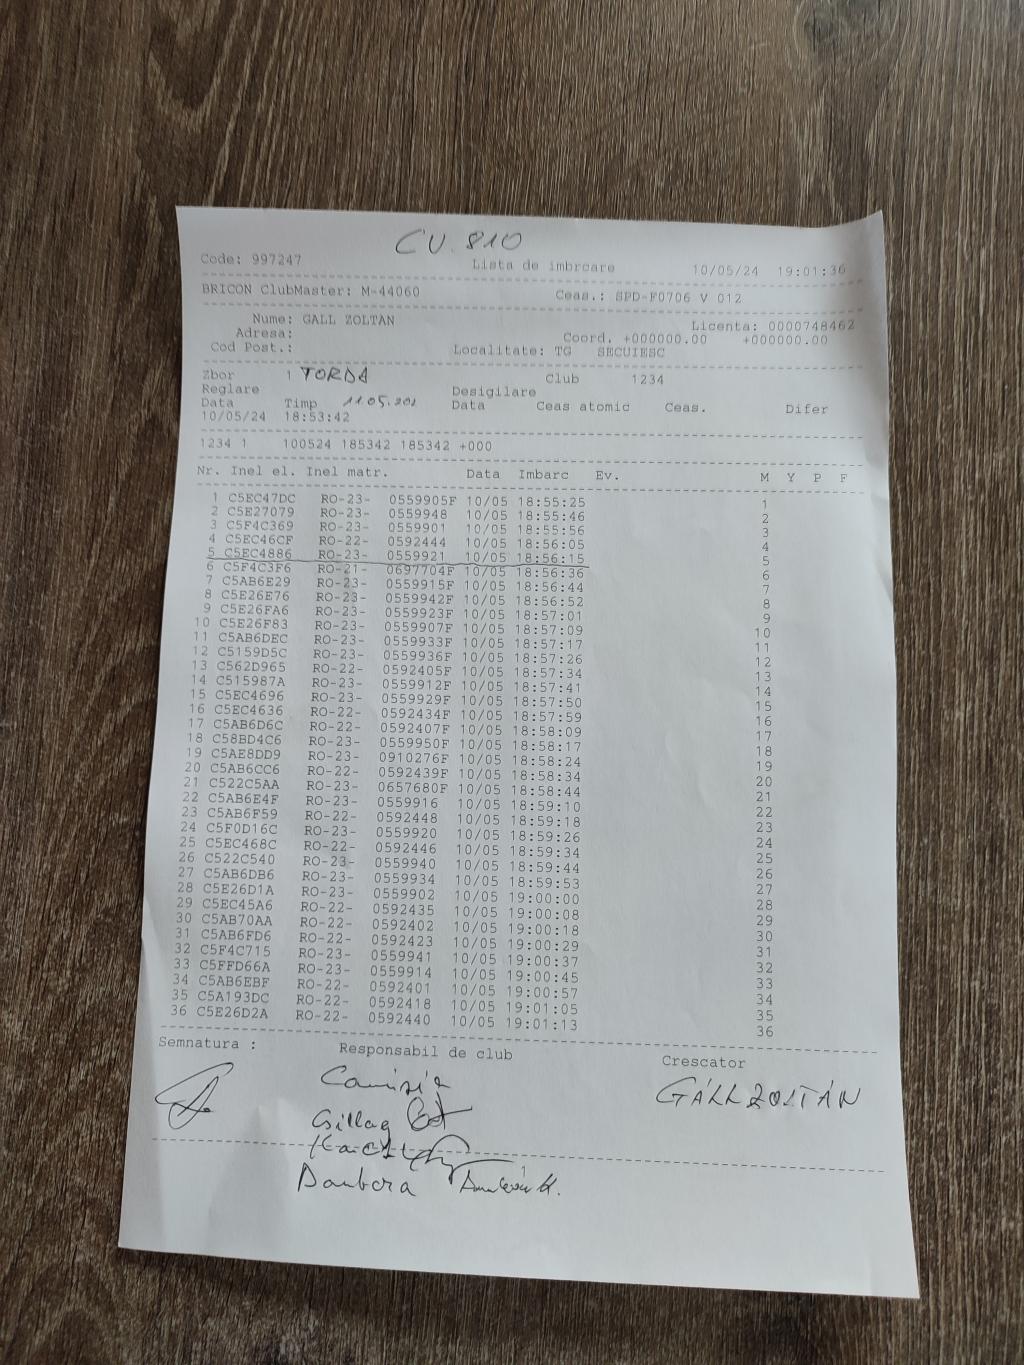 CU. 810
Code: 997247 Lista de imbrcare 10/05/24 19:01:36
BRICON ClubMaster: M-44060 Ceas.: SPD-F0706 V 012
Nume: GALL ZOLTAN Licenta: 0000748462
Adresa: Coord. +000000.00 +000000.00
Cod Post.: Localitate: TG SECUIESC
Zbor 1 TORDA Club 1234
Reglare Desigilare
Data Timp 11.05.202 Data Ceas atomic Ceas. Difer
10/05/24 18:53:42
1234 1 100524 185342 185342 +000
Nr. Inel el. Inel matr. Data Imbarc Ev. M Y P F
1 C5EC47DC RO-23- 0559905F 10/05 18:55:25 1
2 C5E27079 RO-23- 0559948 10/05 18:55:46 2
3 C5F4C369 RO-23- 0559901 10/05 18:55:56 3
4 C5EC46CF RO-22- 0592444 10/05 18:56:05 4
5 C5EC4886 RO-23- 0559921 10/05 18:56:15 5
6 C5F4C3F6 RO-21- 0697704F 10/05 18:56:36 6
7 C5AB6E29 RO-23- 0559915F 10/05 18:56:44 7
8 C5E26E76 RO-23- 0559942F 10/05 18:56:52 8
9 C5E26FA6 RO-23- 0559923F 10/05 18:57:01 9
10 C5E26F83 RO-23- 0559907F 10/05 18:57:09 10
11 C5AB6DEC RO-23- 0559933F 10/05 18:57:17 11
12 C5159D5C RO-23- 0559936F 10/05 18:57:26 12
13 C562D965 RO-22- 0592405F 10/05 18:57:34 13
14 C515987A RO-23- 0559912F 10/05 18:57:41 14
15 C5EC4696 RO-23- 0559929F 10/05 18:57:50 15
16 C5EC4636 RO-22- 0592434F 10/05 18:57:59 16
17 C5AB6D6C RO-22- 0592407F 10/05 18:58:09 17
18 C58BD4C6 RO-23- 0559950F 10/05 18:58:17 18
19 C5AE8DD9 RO-23- 0910276F 10/05 18:58:24 19
20 C5AB6CC6 RO-22- 0592439F 10/05 18:58:34 20
21 C522C5AA RO-23- 0657680F 10/05 18:58:44 21
22 C5AB6E4F RO-23- 0559916 10/05 18:59:10 22
23 C5AB6F59 RO-22- 0592448 10/05 18:59:18 23
24 C5F0D16C RO-23- 0559920 10/05 18:59:26 24
25 C5EC468C RO-22- 0592446 10/05 18:59:34 25
26 C522C540 RO-23- 0559940 10/05 18:59:44 26
27 C5AB6DB6 RO-23- 0559934 10/05 18:59:53 27
28 C5E26D1A RO-23- 0559902 10/05 19:00:00 28
29 C5EC45A6 RO-22- 0592435 10/05 19:00:08 29
30 C5AB70AA RO-22- 0592402 10/05 19:00:18 30
31 C5AB6FD6 RO-22- 0592423 10/05 19:00:29 31
32 C5F4C715 RO-23- 0559941 10/05 19:00:37 32
33 C5FFD66A RO-23- 0559914 10/05 19:00:45 33
34 C5AB6EBF RO-22- 0592401 10/05 19:00:57 34
35 C5A193DC RO-22- 0592418 10/05 19:01:05 35
36 C5E26D2A RO-22- 0592440 10/05 19:01:13 36
Semnatura : Responsabil de club Crescator
Comisia GÁLL ZOLTÁN
Csillag
1